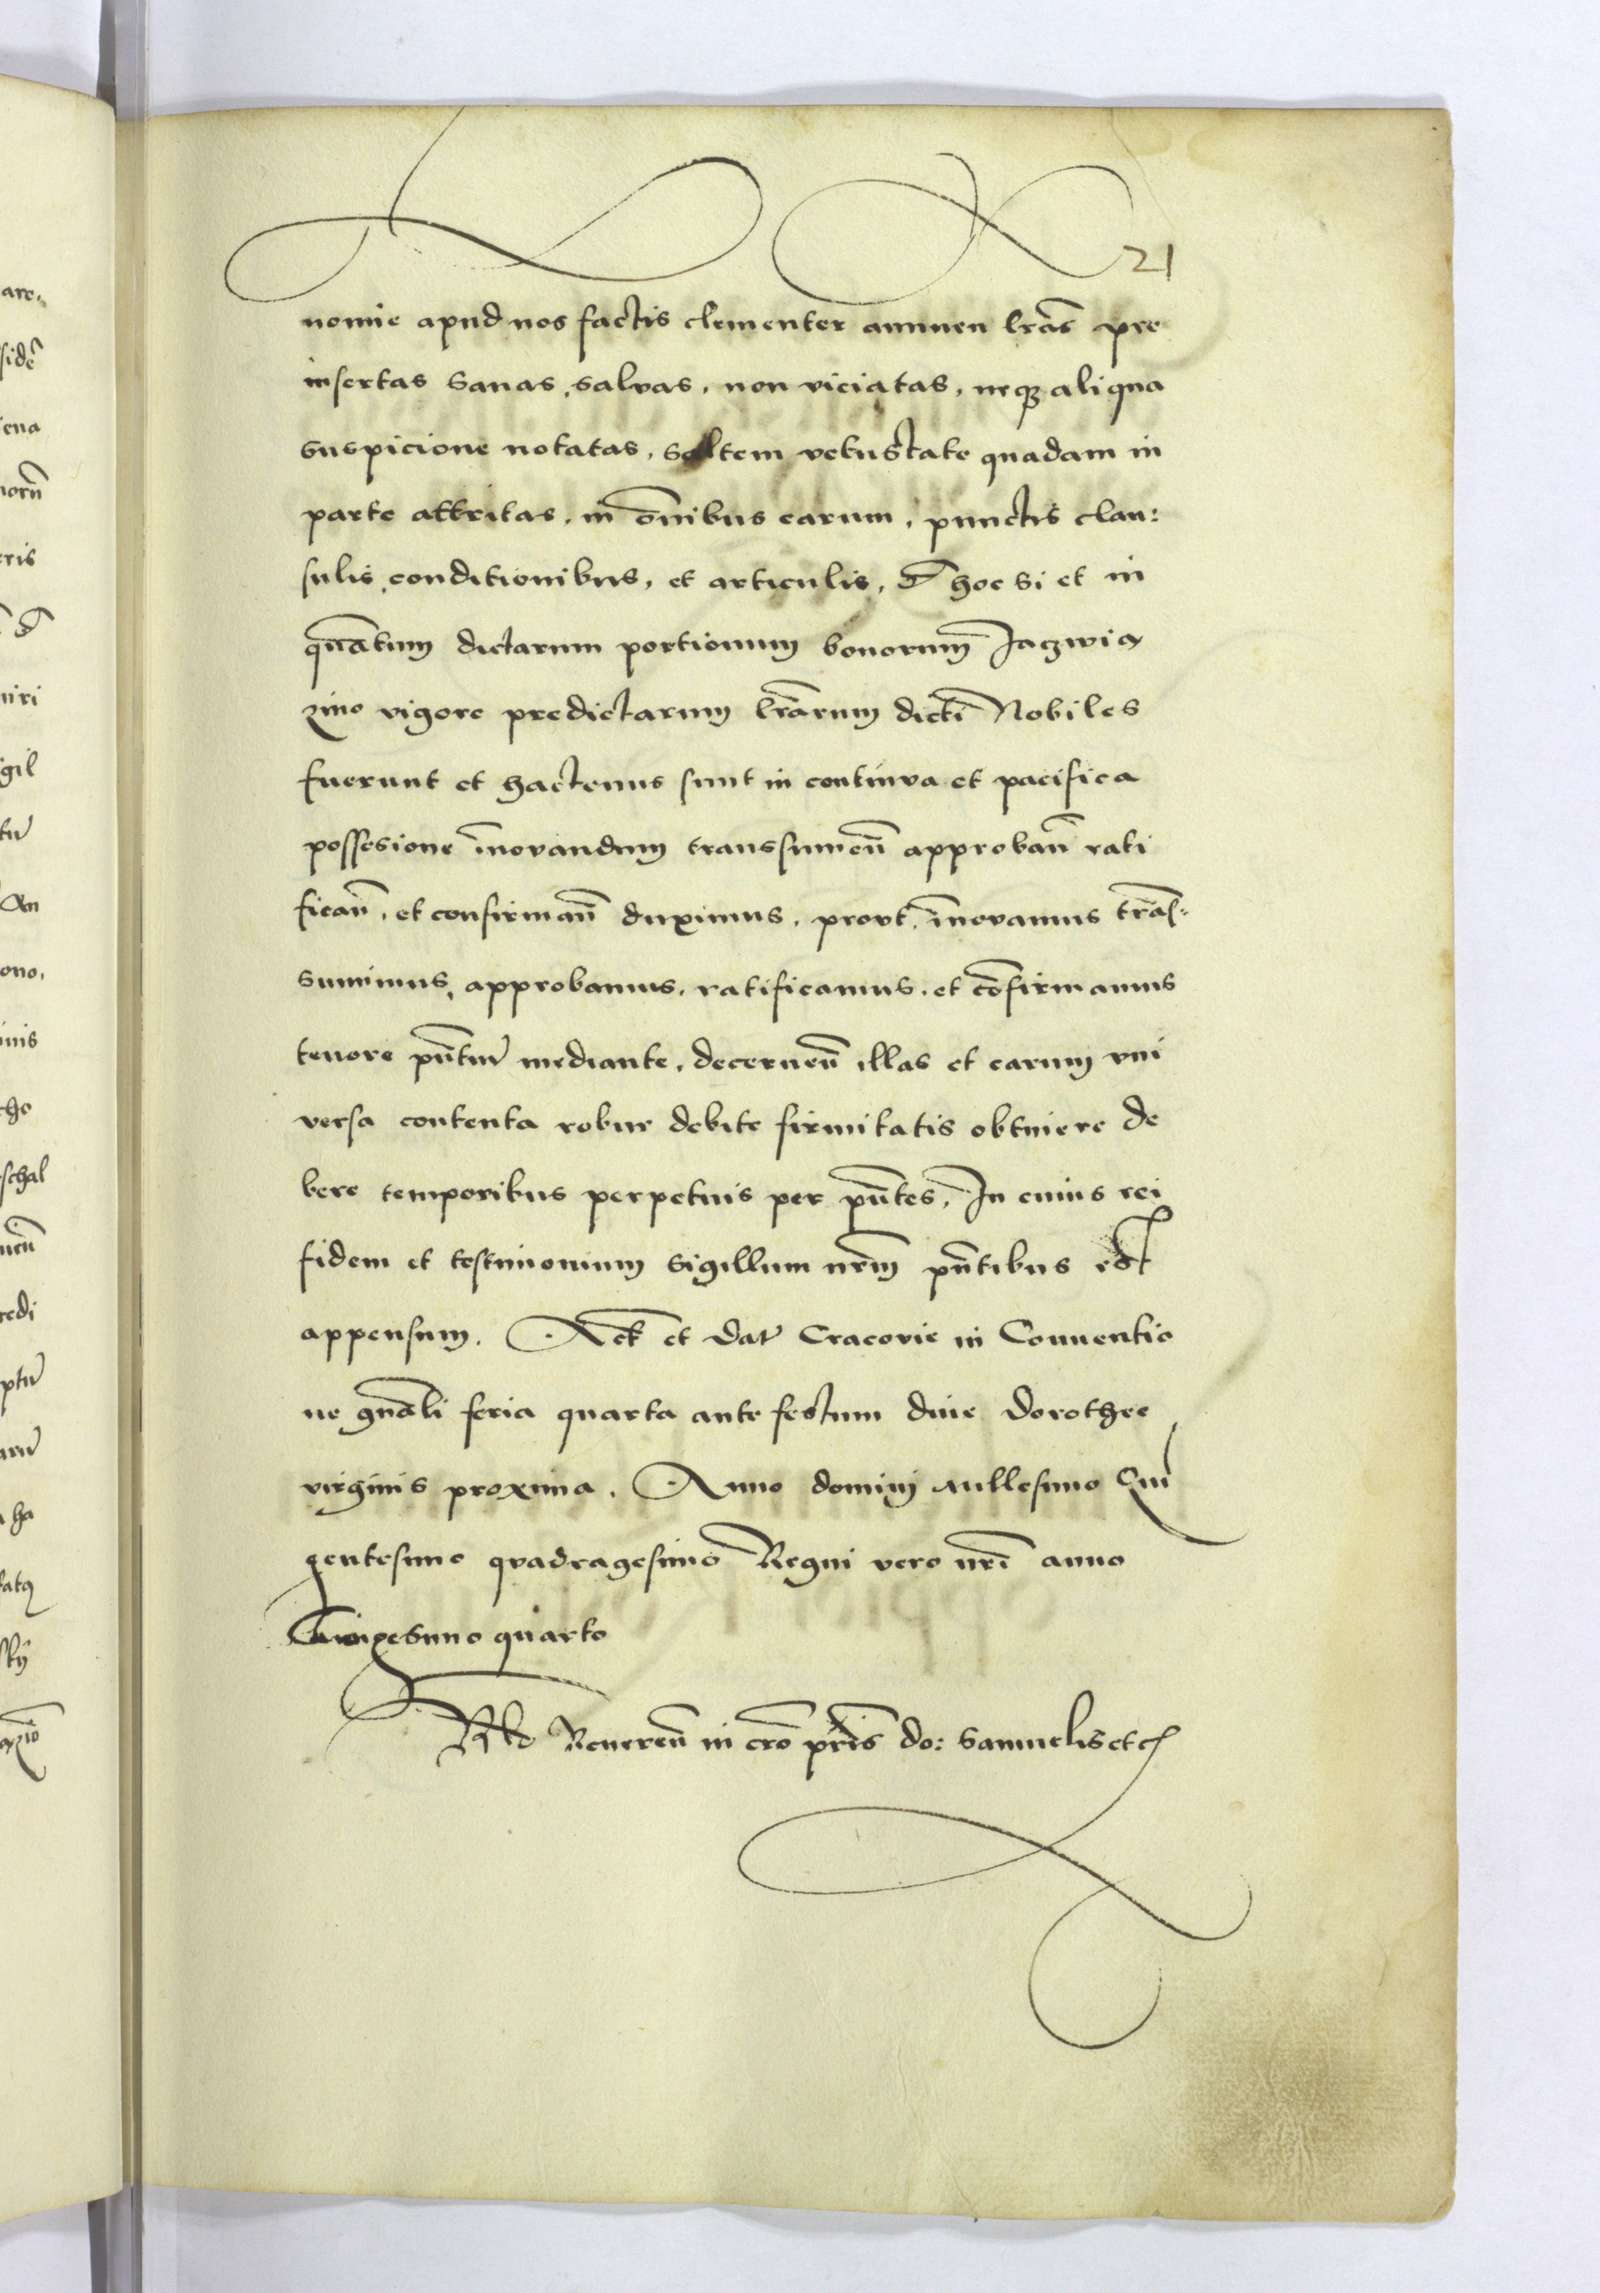 21
nomine apud nos factis clementer annuen lrãs pre
insertas sanas, salvas, non viciatas, neqз aliqua
suspicione notatas, saltem vetustate quadam in
parte attritas, in õmnibus earum, punctis clau:
sulis, conditionibus, et articulis, hoc si et in
quãtum dictarum portionum bonorum Jaczwie
zino vigore predictarum lrãrum dicti Nobiles
fuerunt et hactenus sunt in continva et pacifica
possesione ĩnovandum transsumeñ approbañ rati
ficañ, et confirmañ duximus, provt ĩnovamus trãs:
sumimus, approbamus, ratificamus, et cõfirmamus
tenore pñtiũ mediante, decerneñ illas et earum vni
versa contenta robur debite firmitatis obtinere de
bere temporibus perpetuis per pñtes, In cuius rei
fidem et testimonium sigillum nrm̃ pñtibus est
appensum. Act et dat Cracovie in Conuentio
ne gñali feria quarta ante festum diue Dorothee
virginis proxima. Anno domini Millesimo Quin
gentesimo qvadragesimo Regni vero nrĩ anno
Trigesimo quarto
Rlo Revereñ in cro pris do: Samuelis etc
are,
side
iena
norũ
eris
niri
gil
ono,
inis
cho
schal
redi
ha